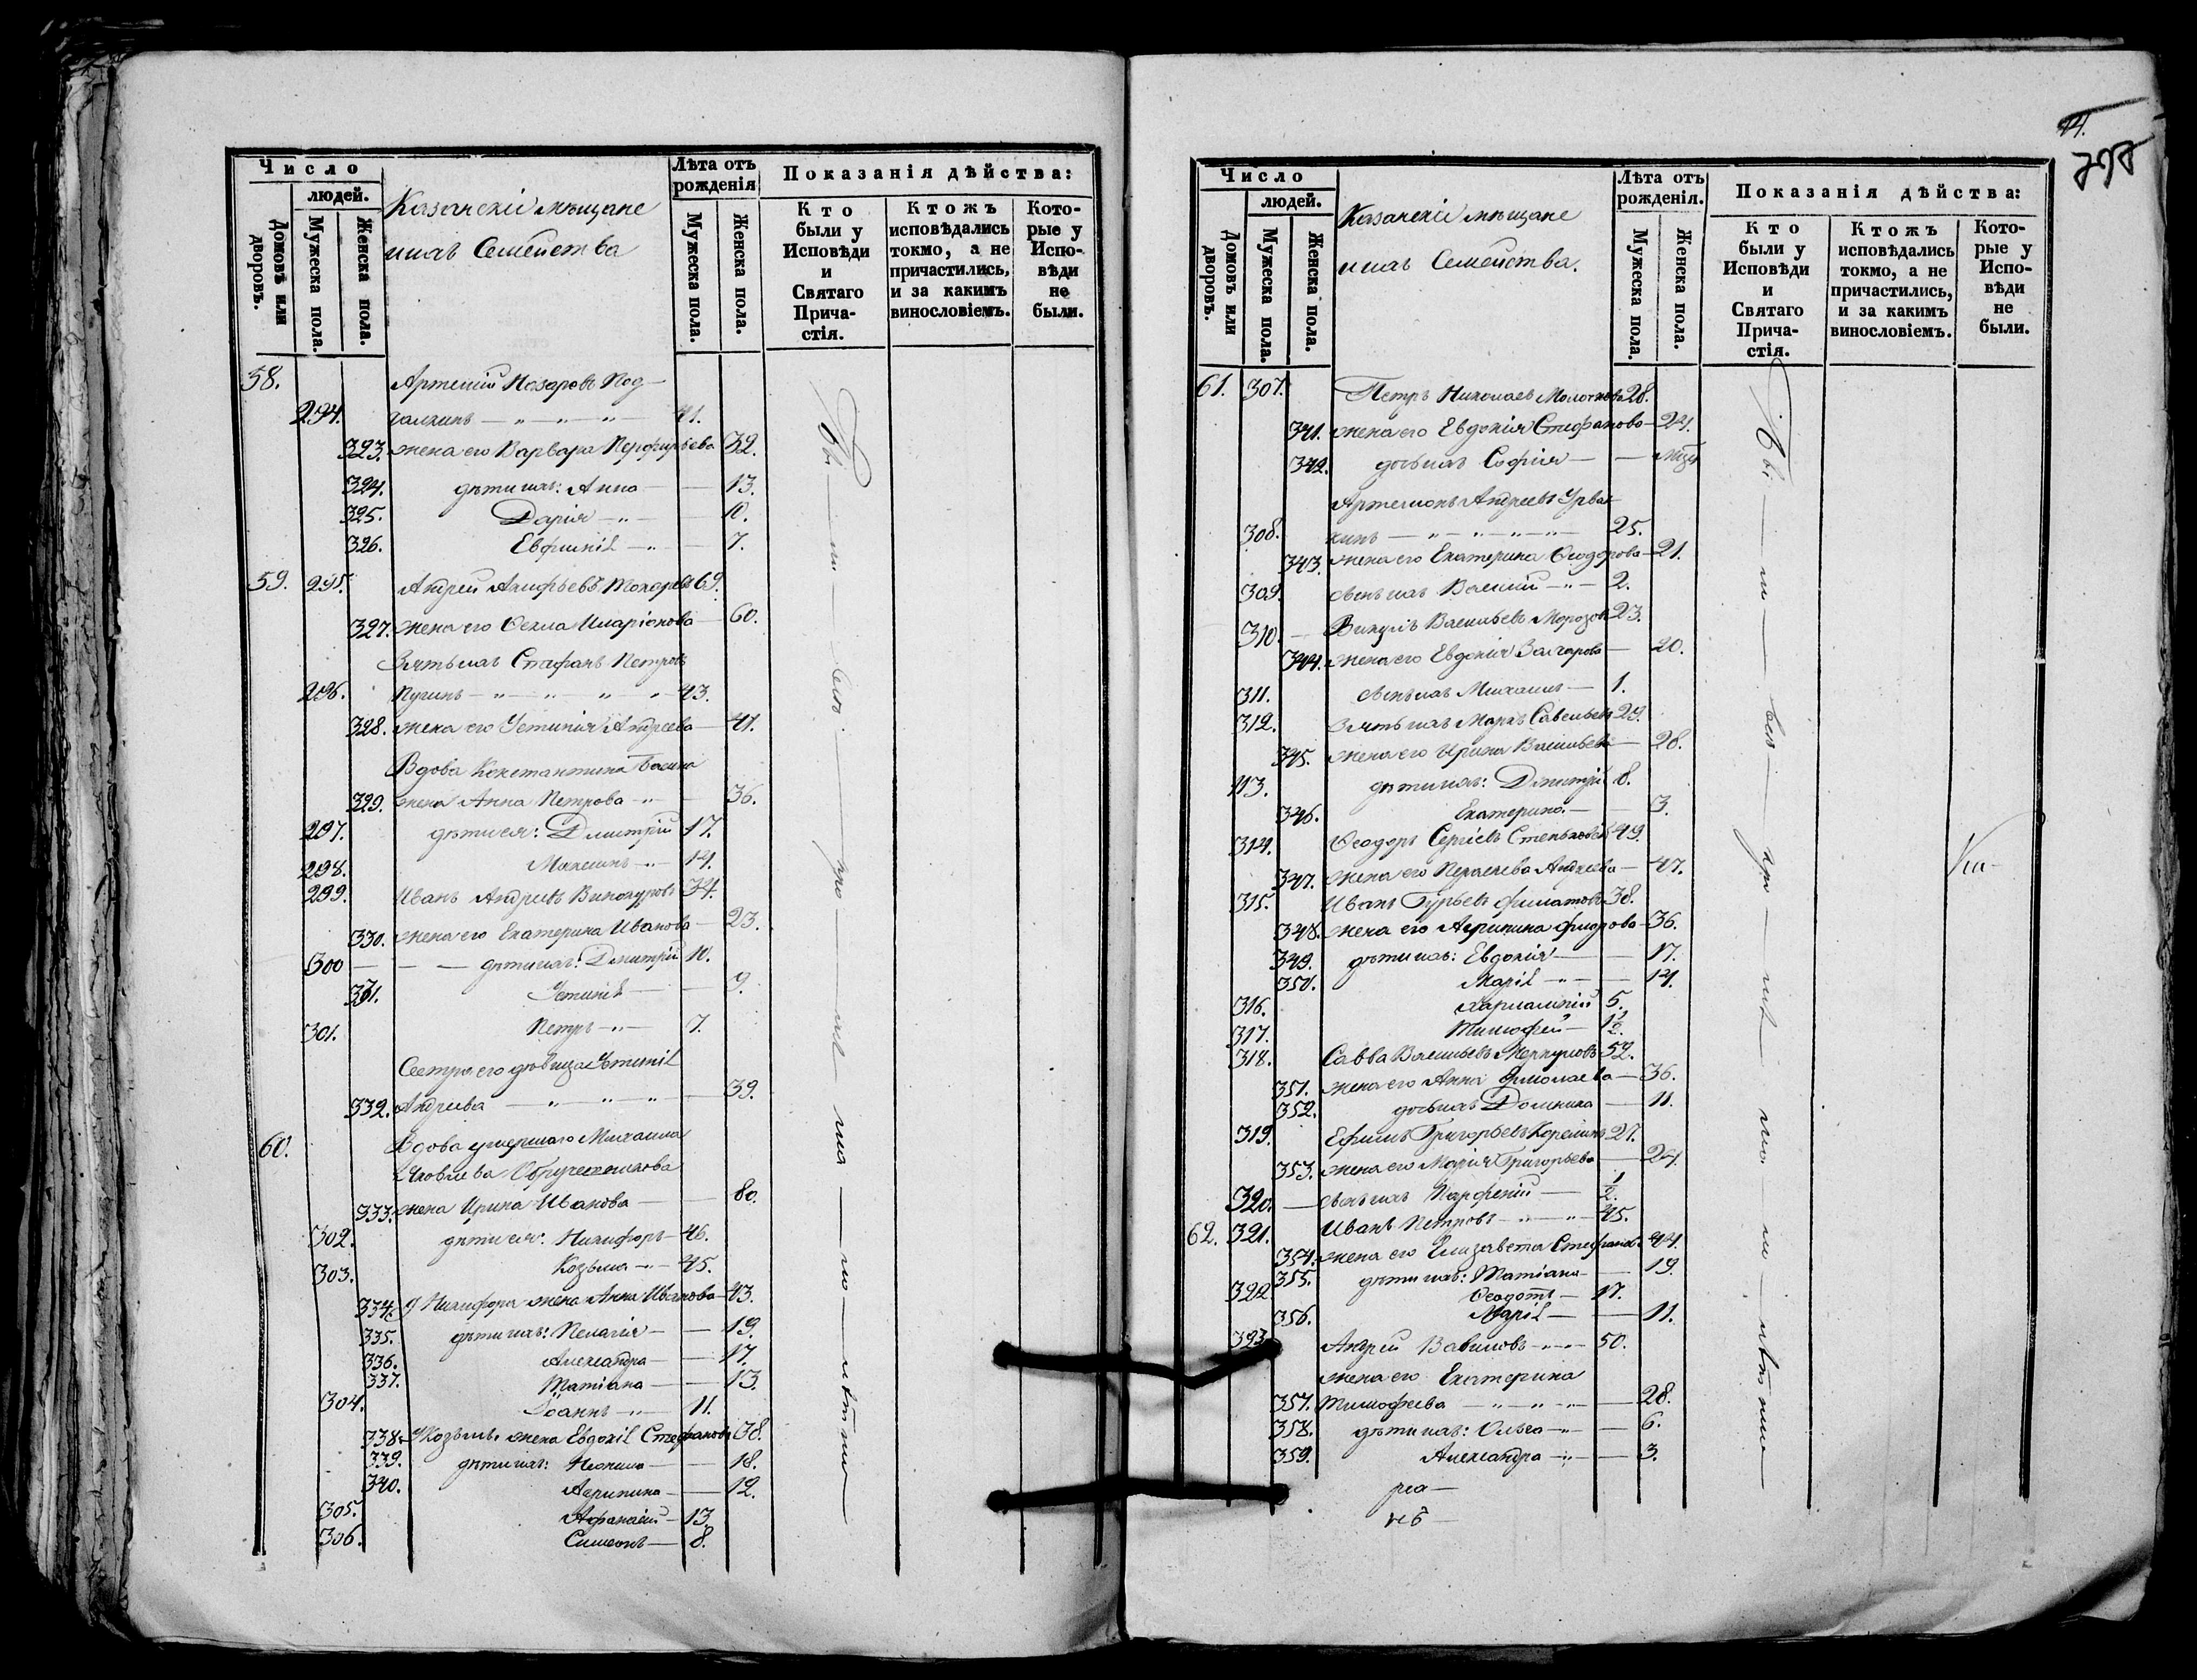 Число
людей.
Домовъ или дворовъ.
Мужеска пола.
Женска пола.
Казанскіе мѣщане
и ихъ Семейства
Лѣта отъ рожденія
Мужеска пола.
Женска пола.
Показанія дѣйства:
Кто были у Исповѣди и Святаго Причастія.
Ктожъ исповѣдались токмо, а не причастились, и за какимъ винословіемъ.
Которые у Исповѣди не были.
58. Артемій Назаровъ Под-
294. 41.
323. жена его Варвара Перфирьева 32.
324. дѣти ихъ: Анна 13.
325. Дарія 10.
326. Евфимія 7.
59. 295. Андрей Алифьевъ Токарев 69.
327. жена его Ѳекла Иларіонова 60.
Зять ихъ Стефанъ Петровъ
296. Пугинъ 43.
328. жена его Устинія Андреева 41.
Вдова Константина
329. жена Анна Петрова 36.
297. дѣти ея: Дмитрій 17.
298. Максимъ 14.
299. Иванъ Андреевъ Винокуровъ 34.
330. жена его Екатерина Иванова 23.
300 дѣти ихъ: Дмитрій 10.
331. Устинія 9.
301. Петръ 7.
Сестра его дѣвица Устинія
332. Андреева 39.
60. Вдова умершаго Михаила
Яковлева Обручешникова
333. жена Ирина Иванова 80.
302. дѣти ея: Никифоръ 46.
303. Козьма 45.
334. У Никифора жена Анна Иванова 43.
335. дѣти ихъ: Пелагія 19.
336. Александра 17.
337. Татіана 13.
304. Іоаннъ 11.
338. У Козьмы жена Евдокія Стефанова 38.
339. дѣти ихъ: Неонила 18.
340. Агрипина 12.
305. Афанасій 13
306. Симеонъ 8.
14.
Число
людей.
Домовъ или дворовъ.
Мужеска пола.
Женска пола.
Казанскіе мѣщане
и ихъ Семейства.
Лѣта отъ рожденія.
Мужеска пола.
Женска пола.
Показанія дѣйства:
Кто были у Исповѣди и Святаго Причастія.
Ктожъ исповѣдались токмо, а не причастились, и за какимъ винословіемъ.
Которые у Исповѣди не были.
61. 307. Петръ Николаевъ Молотков 28.
341. жена его Евдокія Стефанова 24.
342. дочь ихъ Софія
Артемонъ Андреевъ Урван
308. кинъ 25.
343. жена его Екатерина Ѳеодорова 21.
309. сынъ ихъ Василій 2.
310. Викулъ Васильевъ Морозов 23.
344. жена его Евдокія Захарова 20.
311. сынъ ихъ Михаилъ 1.
312. Зять ихъ Маркъ Савельевъ 29.
345. жена его Ирина Васильева 28.
113. дѣти ихъ: Дмитрій 8.
346. Екатерина 3.
314. Ѳеодоръ Сергіевъ 49.
347. жена его Параскева Андреева 47.
315. Иванъ Гурьевъ Филатовъ 38.
348. жена его Агрипина 36.
349. дѣти ихъ: Евдокія 17.
350. Марія 14.
316. Харлампій 5.
317. Тимофей 1½.
318. Савва Васильевъ Меркуловъ 52.
351. жена его Анна 36.
352. дочь ихъ Домника 11.
319. Ефимъ Григорьевъ 27.
353. жена его Марія Григорьева 24.
320. сынъ ихъ Парфеній ½.
62. 321. Иванъ Петровъ 45.
354. жена его Елизавета Стефанов. 44.
355. дѣти ихъ: Татіана 19.
322 Ѳеодотъ 17.
356. Марія 11.
323 Андрей Вавиловъ 50.
жена его Екатерина
357. Тимофеева 28.
358. дѣти ихъ: Ольга 6.
359. Александра 3.